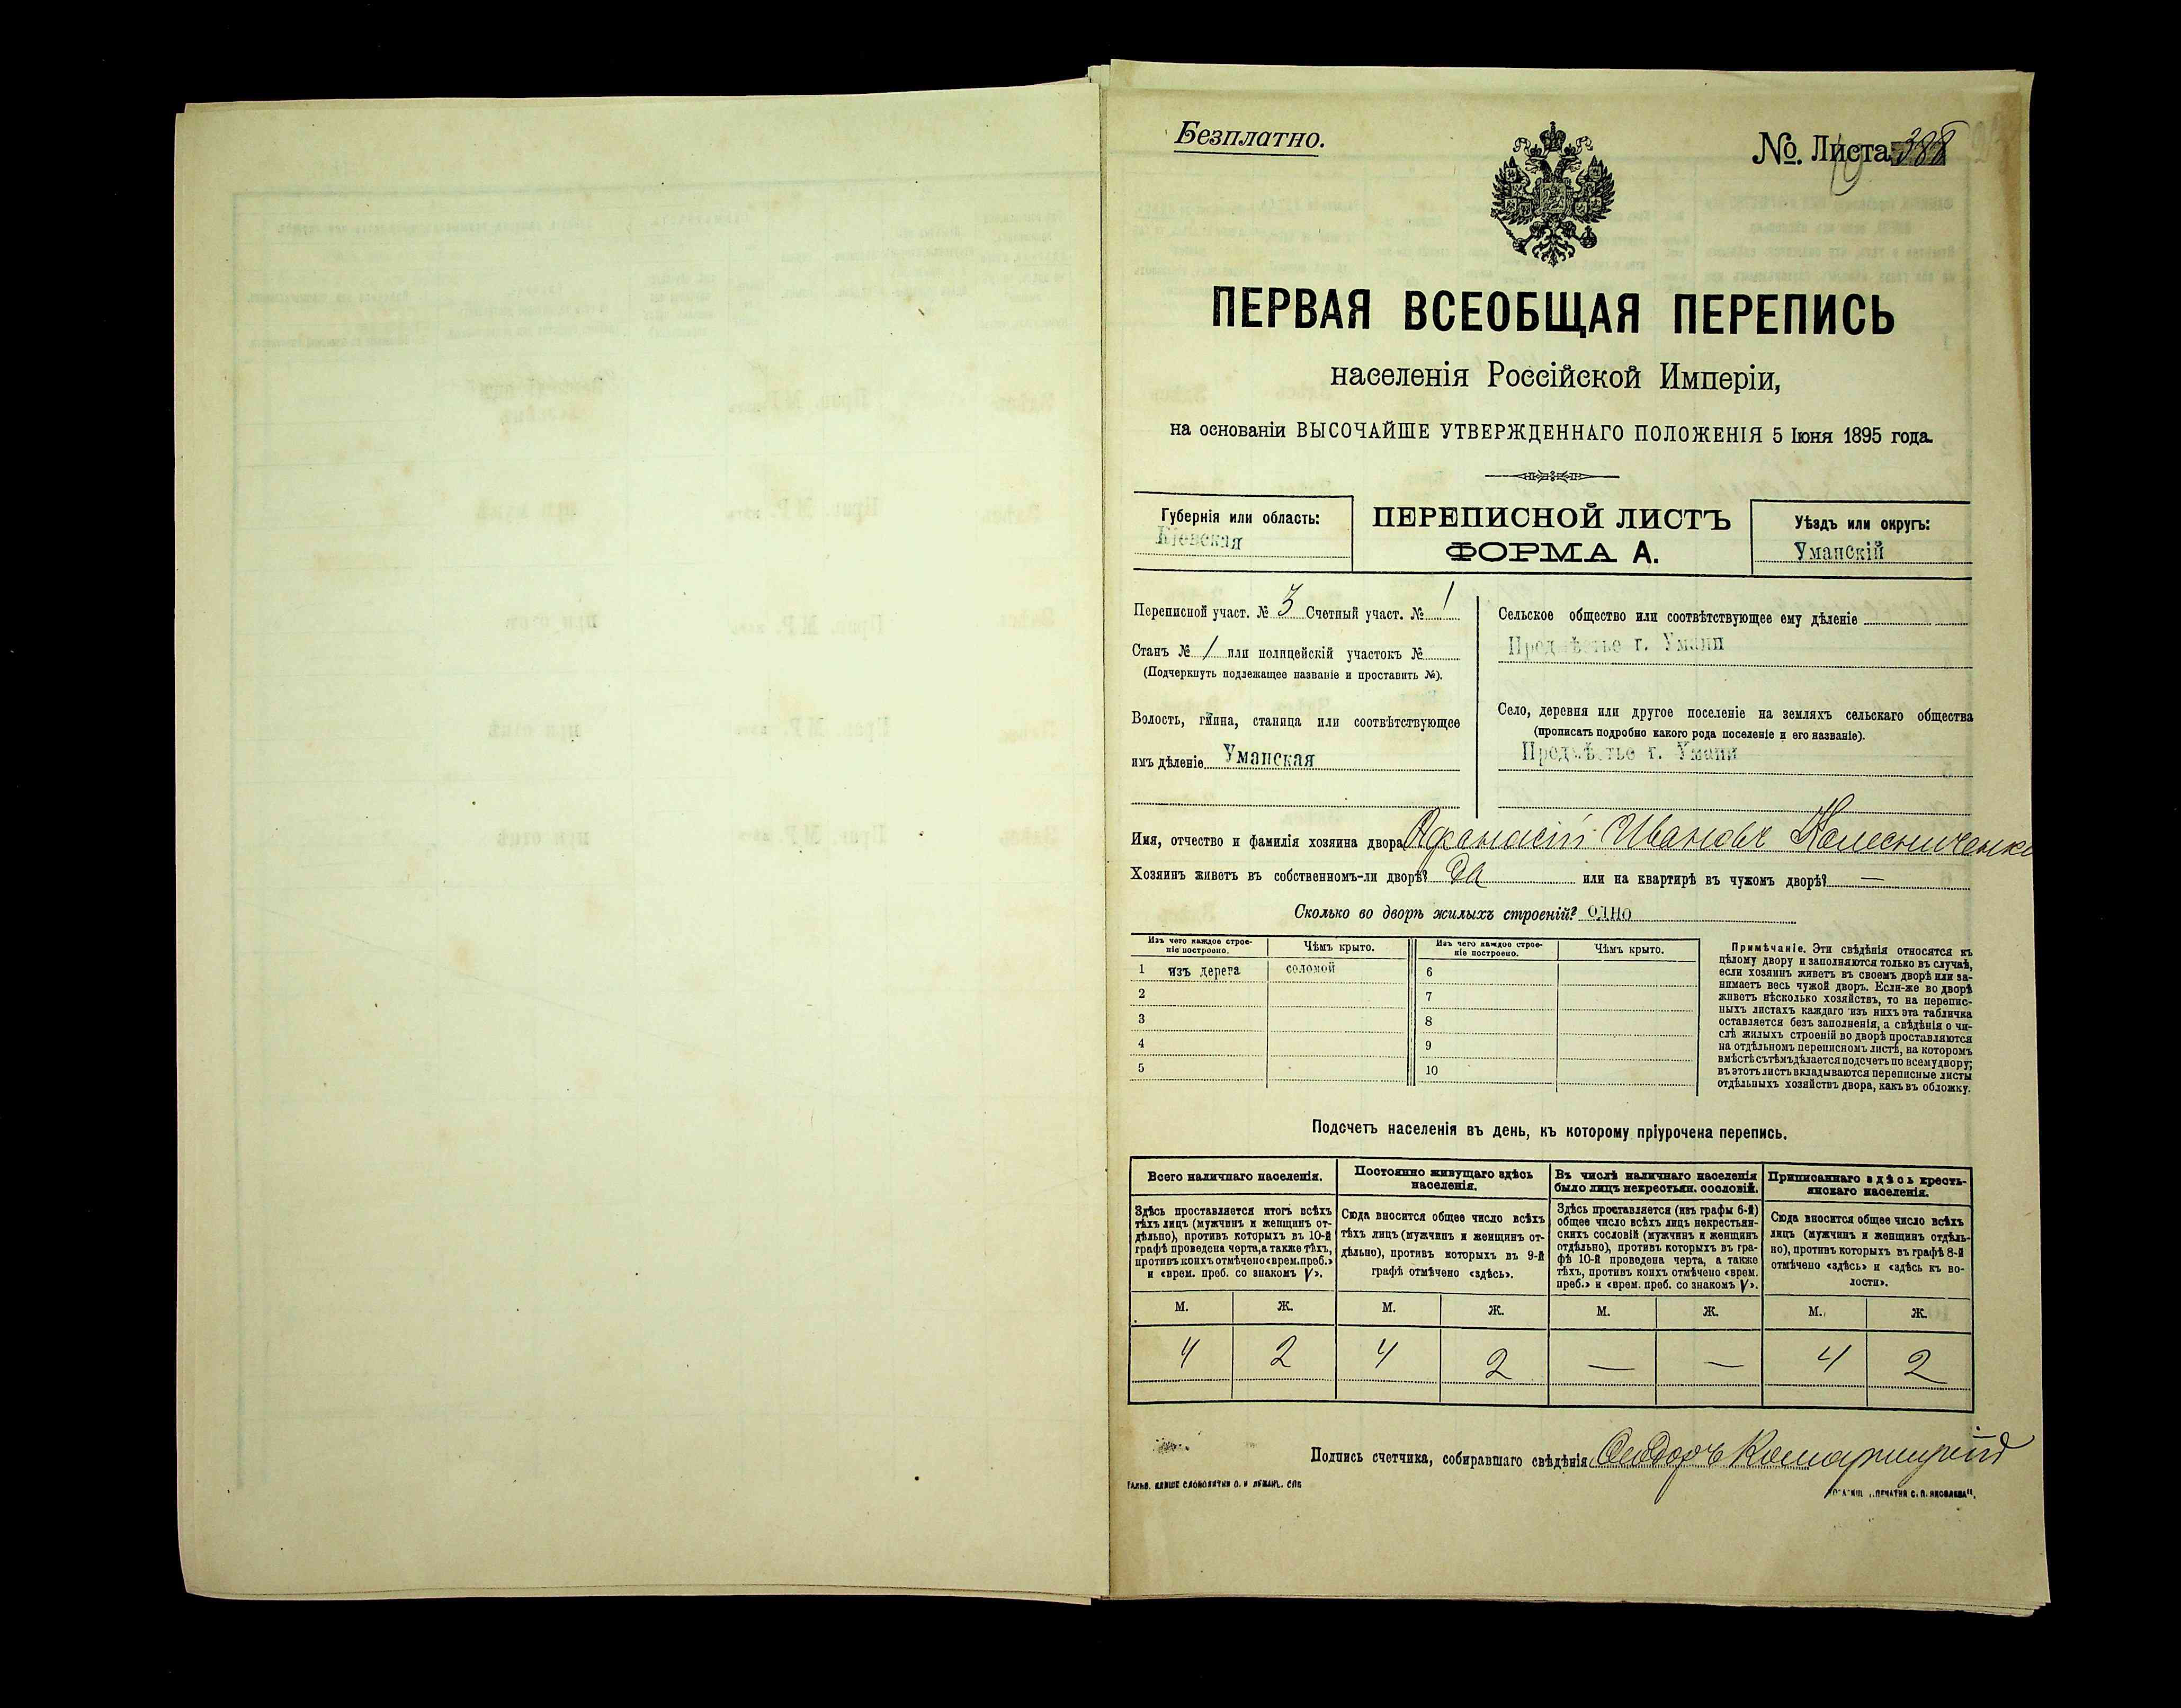 Безплатно.
№. Листа 388
10
ПЕРВАЯ ВСЕОБЩАЯ ПЕРЕПИСЬ
населенія Россійской Имперіи,
на основаніи ВЫСОЧАЙШЕ УТВЕРЖДЕННАГО ПОЛОЖЕНІЯ 5 Іюня 1895 года.
Губернія или область:
Кіевская
ПЕРЕПИСНОЙ ЛИСТЪ
ФОРМА А.
Уѣздъ или округъ:
Уманскій
Переписной участ. № 3 Счетный участ. № 1
Станъ № 1 или полицейскій участокъ №
(Подчеркнуть подлежащее названіе и проставить №).
Волость, гмина, станица или соотвѣтствующее
имъ дѣленіе Уманская
Сельское общество или соотвѣтствующее ему дѣленіе
Предмѣстье г. Умани
Село, деревня или другое поселеніе на земляхъ сельскаго общества
(прописать подробно какого рода поселеніе и его названіе).
Предмѣстье г. Умани
Имя, отчество и фамилія хозяина двора Афанасій Ивановъ Колесниченко
Хозяинъ живетъ въ собственномъ-ли дворѣ? Да или на квартирѣ въ чужомъ дворѣ? —
Сколько во дворѣ жилыхъ строеній? одно
Изъ чего каждое строе-
ніе построено.
Чѣмъ крыто.
Изъ чего каждое строе-
ніе построено.
Чѣмъ крыто.
1 изъ дерева соломой 6
2 7
3 8
4 9
5 10
Примѣчаніе. Эти свѣдѣнія относятся къ
цѣлому двору и заполняются только въ случаѣ,
если хозяинъ живетъ въ своемъ дворѣ или за-
нимаетъ весь чужой дворъ. Если-же во дворѣ
живетъ нѣсколько хозяйствъ, то на перепис-
ныхъ листахъ каждаго изъ нихъ эта табличка
оставляется безъ заполненія, а свѣдѣнія о чи-
слѣ жилыхъ строеній во дворѣ проставляются
на отдѣльномъ переписномъ листѣ, на которомъ
вмѣстѣ съ тѣмъ дѣлается подсчетъ по всему двору;
въ этотъ листъ вкладываются переписные листы
отдѣльныхъ хозяйствъ двора, какъ въ обложку.
Подсчетъ населенія въ день, къ которому пріурочена перепись.
Всего наличнаго населенія.
Здѣсь проставляется итогъ всѣхъ
тѣхъ лицъ (мужчинъ и женщинъ от-
дѣльно), противъ которыхъ въ 10-й
графѣ проведена черта, а также тѣхъ,
противъ коихъ отмѣчено «врем. преб.»
и «врем. преб. со знакомъ V».
Постоянно живущаго здѣсь
населенія.
Сюда вносится общее число всѣхъ
тѣхъ лицъ (мужчинъ и женщинъ от-
дѣльно), противъ которыхъ въ 9-й
графѣ отмѣчено «здѣсь».
Въ числѣ наличнаго населенія
было лицъ некрестьян. сословій.
Здѣсь проставляется (изъ графы 6-й)
общее число всѣхъ лицъ некрестьян-
скихъ сословій (мужчинъ и женщинъ
отдѣльно), противъ которыхъ въ гра-
фѣ 10-й проведена черта, а также
тѣхъ, противъ коихъ отмѣчено «врем.
преб.» и «врем. преб. со знакомъ V».
Приписаннаго здѣсь кресть-
янскаго населенія.
Сюда вносится общее число всѣхъ
лицъ (мужчинъ и женщинъ отдѣль-
но), противъ которыхъ въ графѣ 8-й
отмѣчено «здѣсь» и «здѣсь къ во-
лости».
М. Ж. М. Ж. М. Ж. М. Ж.
4 2 4 2 — — 4 2
Подпись счетчика, собиравшаго свѣдѣнія Ѳеодоръ Комарницкій